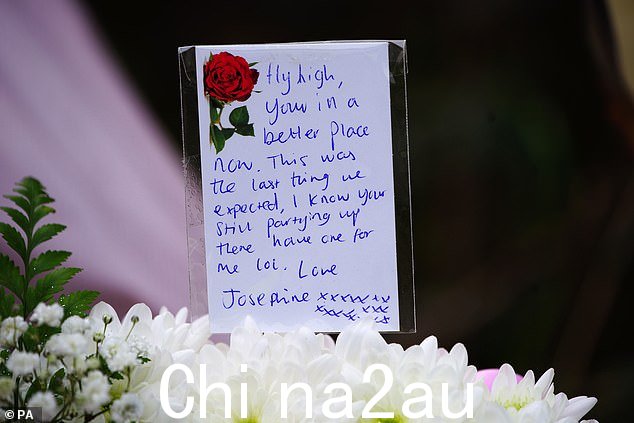 fly high,
your in a
better place
now. This was
the last thing we
expected, I know your
still partying up
there have one for
me lol. Love
Josephine xxxxx xx
xxxx xx
xx
© PA
Chi na2au